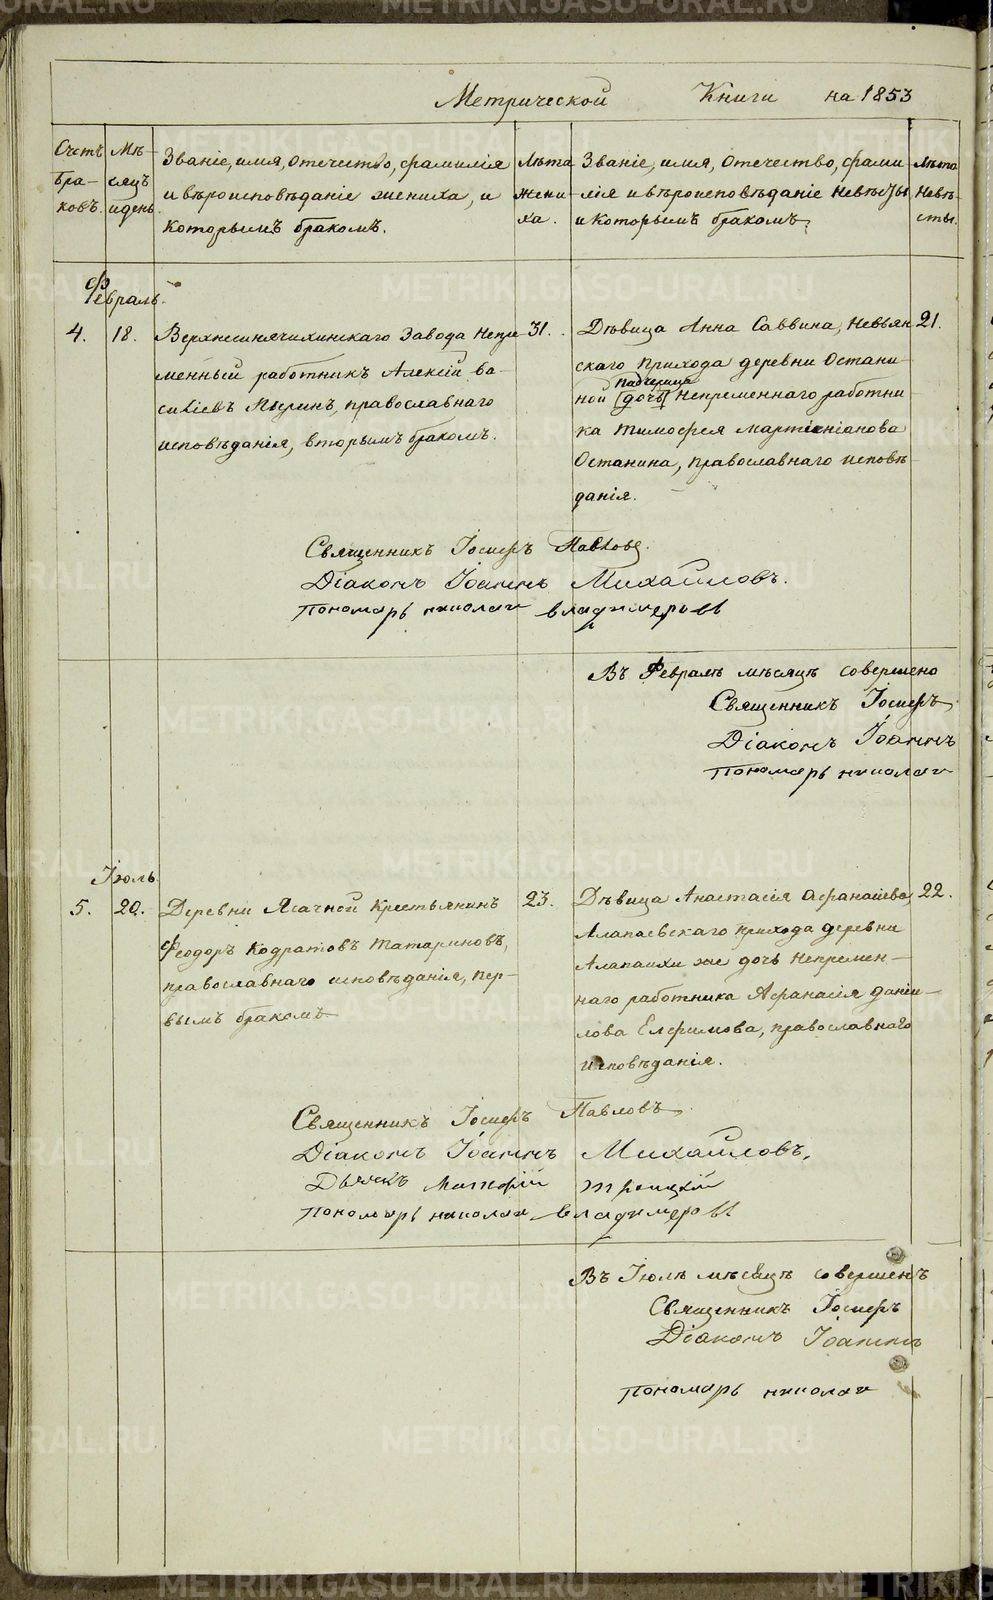 Метрической Книги на 1853
Счетъ бра-ковъ.
Мѣ-сяцъ и день.
Званіе, имя, отечество, фамилія
и вѣроисповѣданіе жениха, и
которымъ бракомъ.
Лѣта жени-ха.
Званіе, имя, отечество, фами-
лія и вѣроисповѣданіе невѣсты
и которымъ бракомъ.
Лѣта невѣ-сты.
Февраль.
4. 18.
Верхнесинячихинскаго Завода Непре-
менный работникъ Алексій Ва-
силіевъ православнаго
исповѣданія, вторымъ бракомъ.
31.
Дѣвица Анна Саввина, Невьян-
скаго прихода деревни Остани-
падчерица
ной [дочь] Непременнаго работни-
ка Тимофея Мартиніанова
Останина, православнаго исповѣ-
данія.
21.
Священникъ Іосифъ Павловъ.
Діаконъ Іоаннъ Михайловъ.
Пономарь николаи владимеровъ
Въ Февралѣ мѣсяцѣ совершено
Священникъ Іосифъ
Діаконъ Іоаннъ
Пономарь николаи
Іюль.
5. 20.
Деревни Ясачной Крестьянинъ
Феодоръ Кодратовъ Татариновъ,
православнаго исповѣданія, пер-
вымъ бракомъ
23.
Дѣвица Анастасія Афанасіева,
Алапаевскаго прихода деревни
Алапаихи же дочь Непремен-
наго работника Афанасія Дании-
лова Елфимова, православнаго
исповѣданія.
22.
Священникъ Іосифъ Павловъ.
Діаконъ Іоаннъ Михайловъ.
Дьячкъ Матфій Троицкій
Пономарь николаи владимеровъ
Въ Іюлѣ мѣсяцѣ совершенъ
Священникъ Іосифъ
Діаконъ Іоаннъ
Пономарь николаи
METRIKI.GASO-URAL.RU